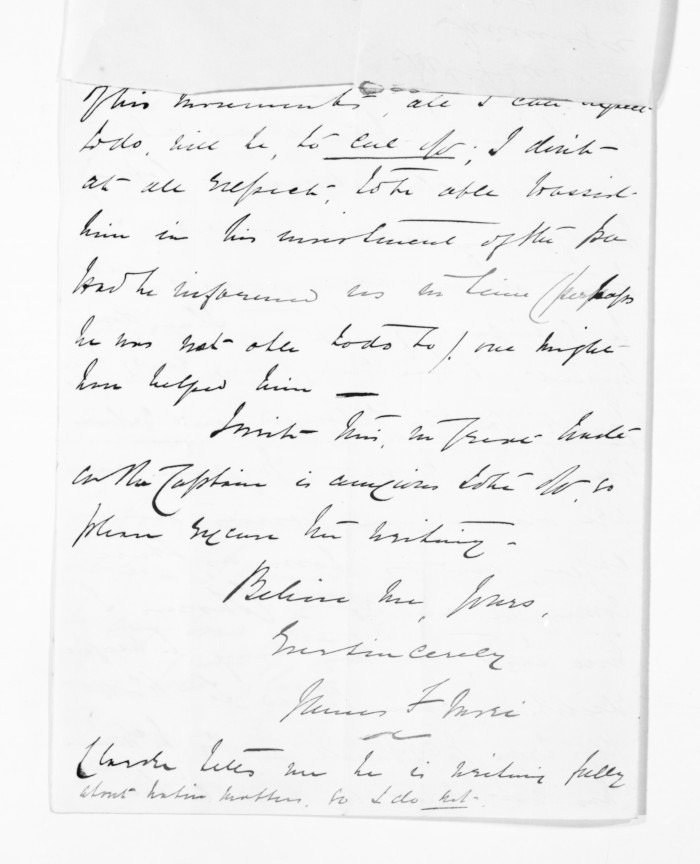 of his movements, all I can expect
to do, will be, to call off; I don't
at all expect, to be able to assist
him in his investment of the Pa
Had he informed us in time (perhaps
he was not able to do so), one might
have helped him —
I write this, in great haste
as the Captain is anxious to be off, so
please excuse the writing -
Believe me, yours,
Ever sincerely
James F
Clarke tells me he is writing fully
about native matters, so I do not.